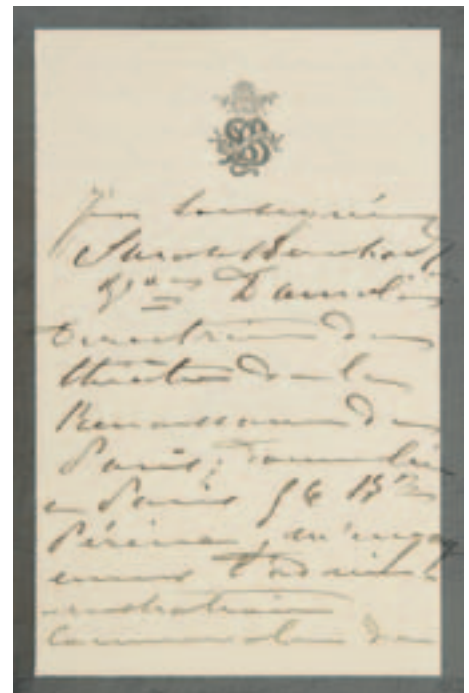 Je soussignée
Sarah Bernhardt
Vve Damala
Directrice du
théâtre de la
Renaissance de
Paris, domiciliée
à Paris 56 Bd
Péreire, m'engage
envers l'admini
-stration